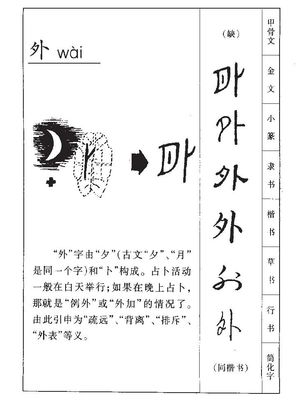 外 wài
“外”字由“夕”(古文“夕”、“月”
是同一个字)和“卜”构成。占卜活动
一般在白天举行;如果在晚上占卜,
那就是“例外”或“外加”的情况了。
由此引申为“疏远”、“背离”、“排斥”、
“外表”等义。
(缺) 甲骨文
外 金文
外 小篆
外 隶书
外 楷书
外 草书
外 行书
(同楷书) 简化字